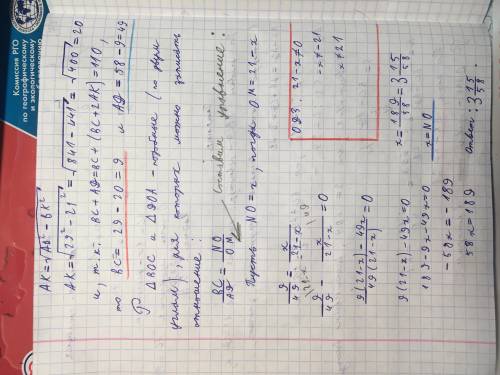 Комиссия РГО
по географическому
и экологическому
AK = √AB² - BK²
AK = √29² - 21² = √841 - 441 = √400 = 20
и, т.к. BC + AD = BC + (BC + 2AK) = 110,
то BC = 29 - 20 = 9 и AD = 58 - 9 = 49
△BOC и △DOA - подобные (по двум
углам), для которых можно записать
отношение:
BC/AD = NO/OM
Составим уравнение:
Пусть NO = x, тогда OM = 21 - x
9/49 = x/21-x
9/49 - x/21-x = 0
9(21-x) - 49x/49(21-x) = 0
9(21-x) - 49x = 0
189 - 9x - 49x = 0
-58x = -189
58x = 189
ОДЗ: 21 - x ≠ 0
-x ≠ -21
x ≠ 21
x = 189/58 = 3 15/58
x = NO
Ответ: 3 15/58.